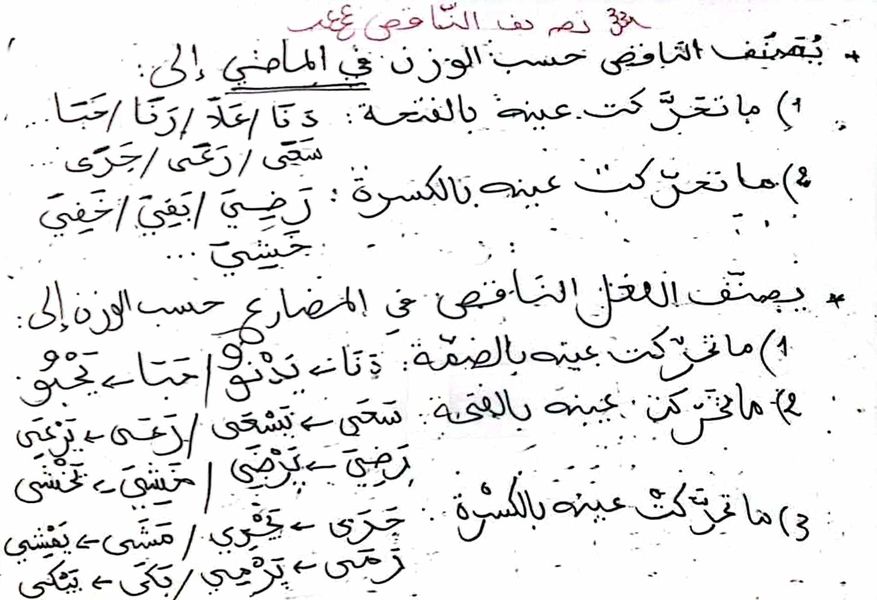 تصريف الناقص
* يُصنّف الناقص حسب الوزن في الماضي إلى:
1) ما تحرَّكت عينه بالفتحة: دَنَا / عَلَا / رَنَا / حَبَا ...
سَعَى / رَعَى / جَرَى ...
2) ما تحرّكت عينه بالكسرة: رَضِيَ / بَقِيَ / خَفِيَ
خَشِيَ ...
* يصنّف الفعل الناقص في المضارع حسب الوزن إلى:
1) ما تحرّكت عينه بالضمّة: دَنَا ← يَدْنُو / حَبَا ← يَحْبُو
2) ما تحرّكت عينه بالفتحة: سَعَى ← يَسْعَى / رَعَى ← يَرْعَى
رَضِيَ ← يَرْضَى / خَشِيَ ← يَخْشَى
3) ما تحرّكتْ عينه بالكسْرة: جَرَى ← يَجْرِي / مَشَى ← يَمْشِي
رَمَى ← يَرْمِي / بَكَى ← يَبْكِي